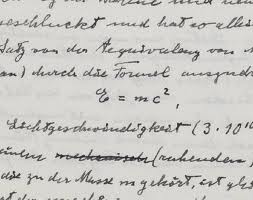 geschluckt und hat so alles
Satz von der Aequivalenz von
durch die Formel ausgedr
E = mc²,
Lichtgeschwindigkeit (3 · 10¹⁰
mechanischen (ruhenden,
die zu der Masse m gehört, ist gle